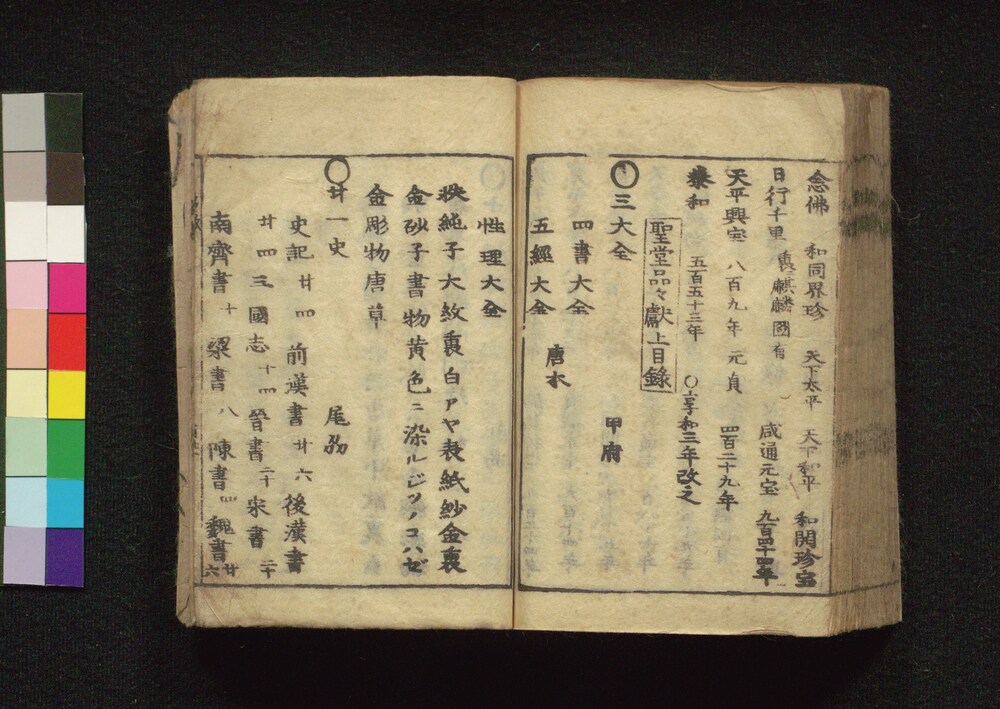 念佛 和同界珍 天下太平 天下和平 和開珎宝
日行千里 裏麒麟國有 咸通元宝 九百四十四年
天平興宝 八百九年 元貞 四百二十九年
泰和 五百五十三年 〇享和三年改之
聖堂品々獻上目錄
〇三大全 甲府
四書大全
五經大全 唐本
性理大全
袟純子大紋裏白アヤ表紙紗金裏
金砂子書物黄色ニ染ルジツノコハゼ
金彫物唐草
〇廿一史 尾刕
史記廿四 前漢書廿六 後漢書
廿四 三國志十四 晉書二十 宋書二十
南齊書十 梁書八 陳書四 魏書廿六